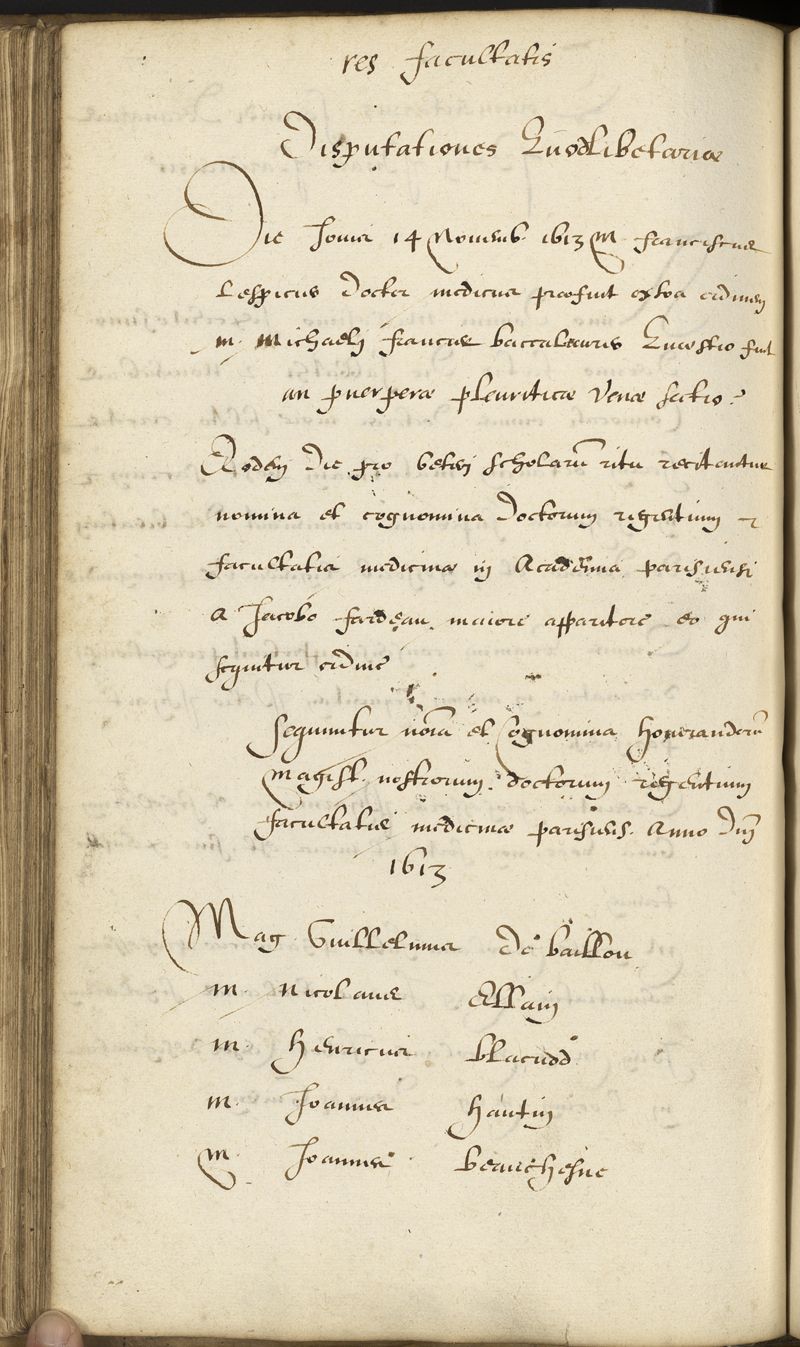 res facultatis
Disputationes Quodlibetariæ
Die Jovis 14 Novemb. 1613 M. franciscus
Lespicius doctor medicus præfuit extra ordinem
m. Michaeli francus baccalaureo Quæstio fuit
an puerperæ pleuriticæ Venæ sectio?
Eodem die pro veteri scholarū ritu recitantur
nomina et cognomina doctorum regentium
facultatis medicinæ in Academia parisiensi
a Jacobo fardeau maiore apparitore eo qui
sequitur ordine
sequuntur noīa et Cognomina Honorandorū
Magist. nostrorum doctorum regentium
facultatis medicinæ parisiens. Anno Dnj
1613
Mag Guillelmus de baillou
m. Nicolaus Ellain
m. Henricus blacuod
m. Joannes hautin
m. Joannes beauchesne